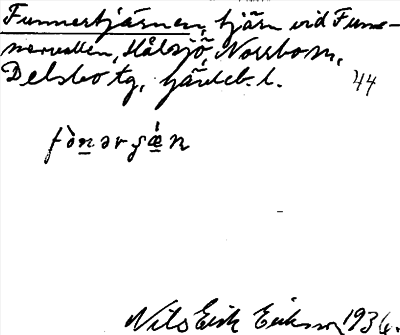 Funnertjärnen, tjärn vid Funne-
narvallen, Hålsjö, Norrbo sn,
Delsbo tg, Gävleb. l. 44
fònərʃæ̀n
Nils Erik Eriksson 1936.